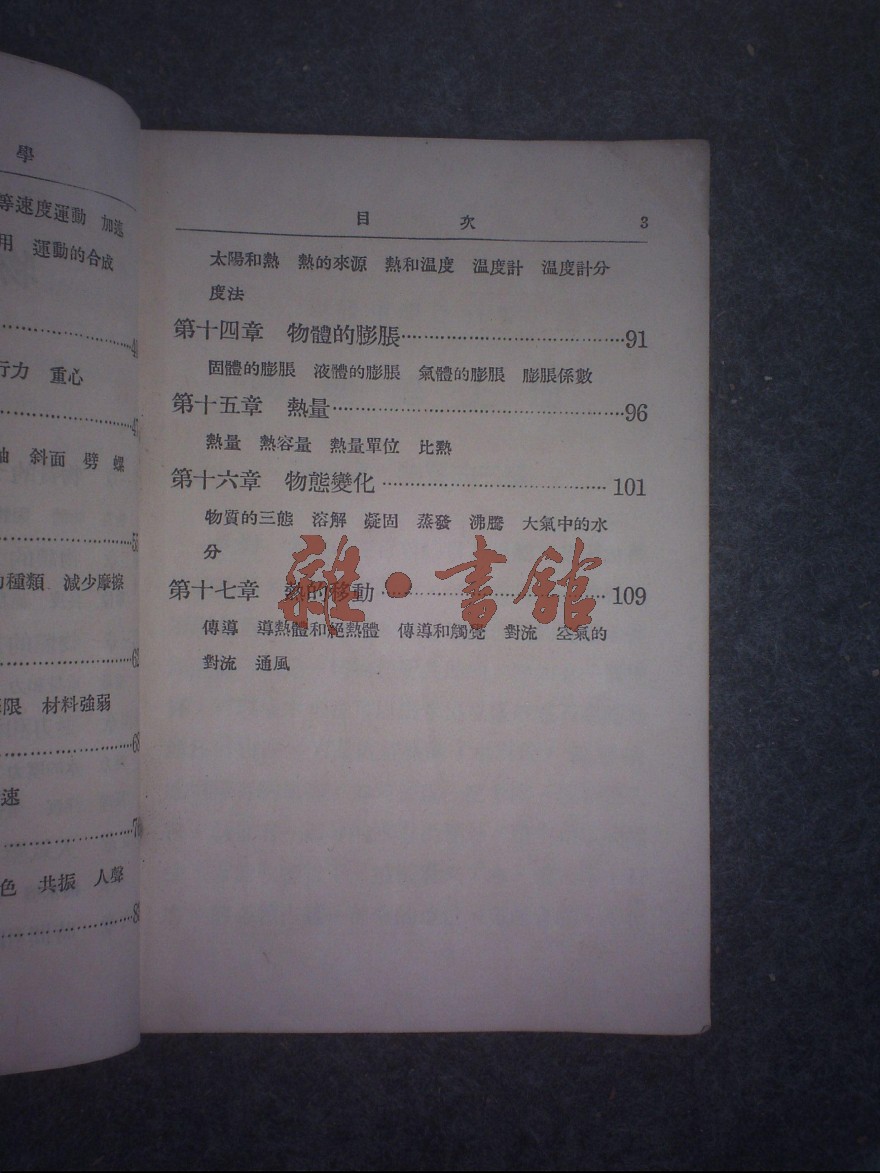 學
等速度運動 加速
用 運動的合成
行力 重心
斜面 劈 螺
種類 減少摩擦
限 材料強弱
68
速
色 共振 人聲
目 次 3
太陽和熱 熱的來源 熱和溫度 溫度計 溫度計分
度法
第十四章 物體的膨脹……………………………91
固體的膨脹 液體的膨脹 氣體的膨脹 膨脹係數
第十五章 熱量……………………………………96
熱量 熱容量 熱量單位 比熱
第十六章 物態變化……………………………101
物質的三態 溶解 凝固 蒸發 沸騰 大氣中的水
分
第十七章 熱的移動……………………………109
雜·書館
傳導 導熱體和絕熱體 傳導和觸覺 對流 空氣的
對流 通風